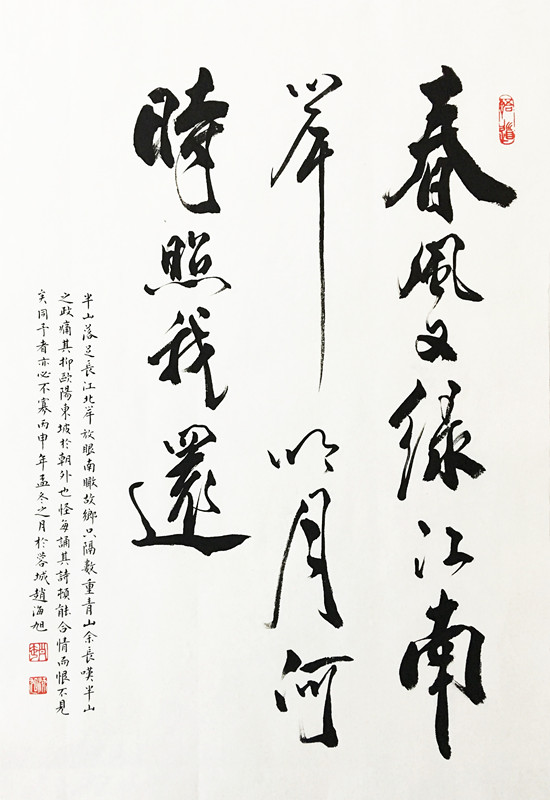 春風又綠江南
岸明月何
時照我還
半山落足長江北岸放眼南瞰故鄉只隔數重青山余長嘆半山
之政痛其抑歐陽東坡於朝外也怪每誦其詩頓能合情而恨不見
矣同予者亦必不寡丙申年孟冬之月於蓉城趙海旭